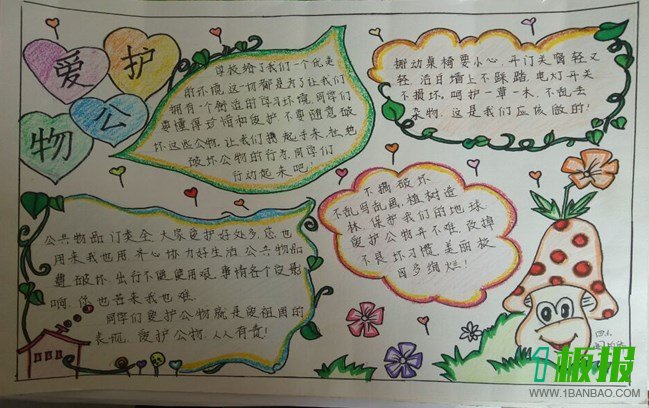 爱护
公物
学校给了我们一个优美
的环境,这一切都是为了让我们
拥有一个舒适的学习环境,同学们
要懂得珍惜和爱护,不要随意破
坏这些公物,让我们携起手来,杜绝
破坏公物的行为,同学们
行动起来吧!
搬动桌椅要小心,开门关窗轻又
轻,洁白墙上不踩踏,电灯开关
不损坏,呵护一草一木,不乱丢
杂物,这是我们应该做的!
不搞破坏
不乱写乱画,植树造
林,保护我们的地球
爱护公物并不难,改掉
不良坏习惯,美丽校
园多绚烂!
公共物品
大家爱护好处多,您也
用来我也用,开心协力好生活,公共物品
费破坏,出行不便使用艰,事情各个
你也苦来我也难.
同学们爱护公物就是爱祖国的
表现,爱护公物,人人有责!
1板报
WWW.1BANBAO.COM